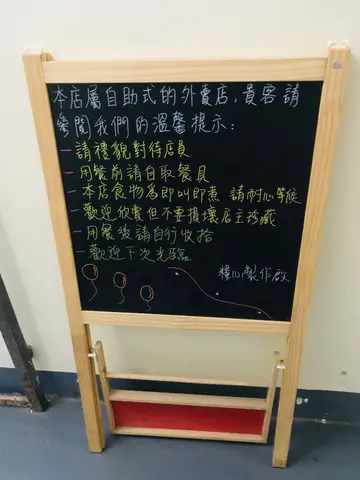 本店屬自助式的外賣店，貴客請
參閱我們的溫馨提示：
－請禮貌對待店員
－用餐前請自取餐具
－本店食物為即叫即煮 請耐心等候
－歡迎欣賞但不要損壞店主珍藏
－用餐後請自行收拾
－歡迎下次光臨。
糧心製作啟